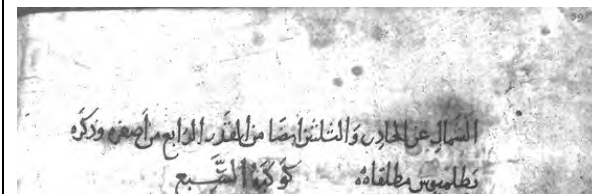 الشمالي عن الحادي والثلثين ايضا من القدر الرابع من أصغره وذكره
بطلميوس مطلقا ه كوكبة السَّبع